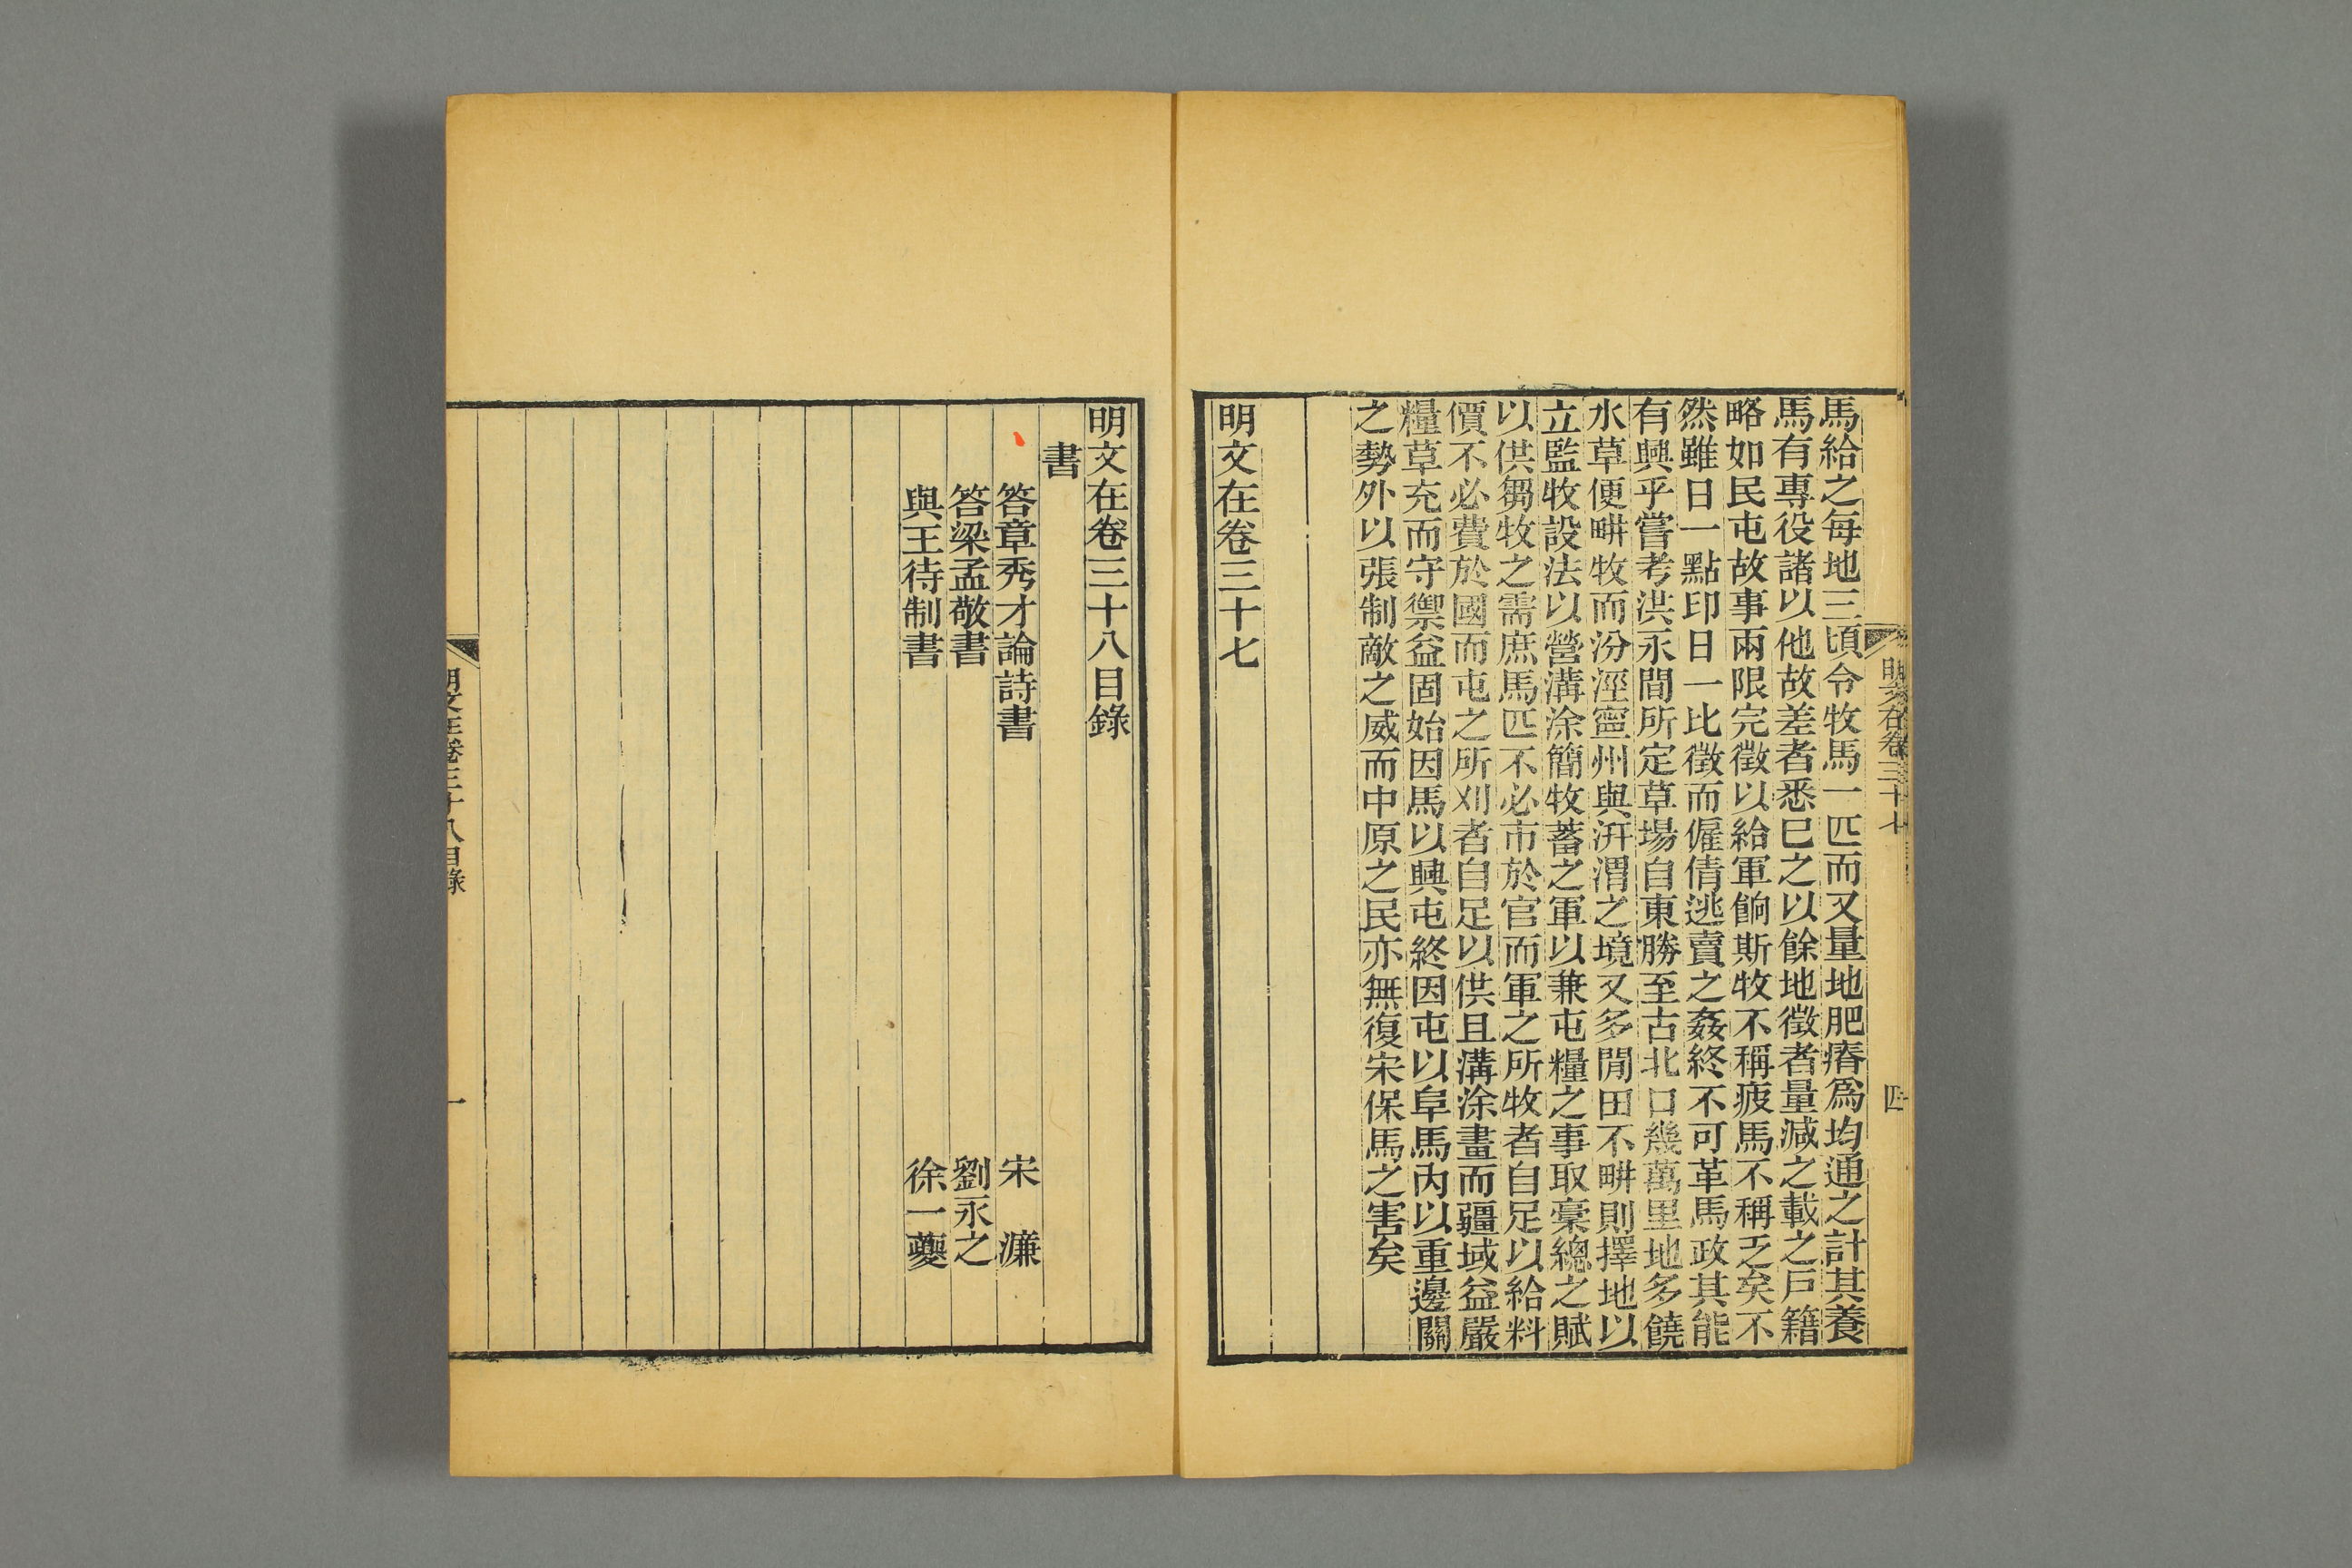 馬給之每地三頃令牧馬一匹而又量地肥瘠爲均通之計其養
馬有專役諸以他故差者悉巳之以餘地徵者量減之載之戸籍
略如民屯故事兩限完徵以給軍餉斯牧不稱疲馬不稱乏矣不
然雖日一點印日一比徵而僱倩逃賣之姦終不可革馬政其能
有興乎嘗考洪永間所定草場自東勝至古北口幾萬里地多饒
水草便畊牧而汾涇寧州與汧渭之境又多閒田不畊則擇地以
立監牧設法以營溝涂簡牧蓄之軍以兼屯糧之事取稾總之賦
以供芻牧之需庶馬匹不必市於官而軍之所牧者自足以給料
價不必費於國而屯之所刈者自足以供且溝涂畫而疆域益嚴
糧草充而守禦益固始因馬以興屯終因屯以阜馬內以重邊關
之勢外以張制敵之威而中原之民亦無復宋保馬之害矣
明文在卷三十七
明文在卷三十七
四
明文在卷三十八目錄
書
答章秀才論詩書 宋濂
答梁孟敬書 劉永之
與王待制書 徐一夔
明文在卷三十八目錄
一